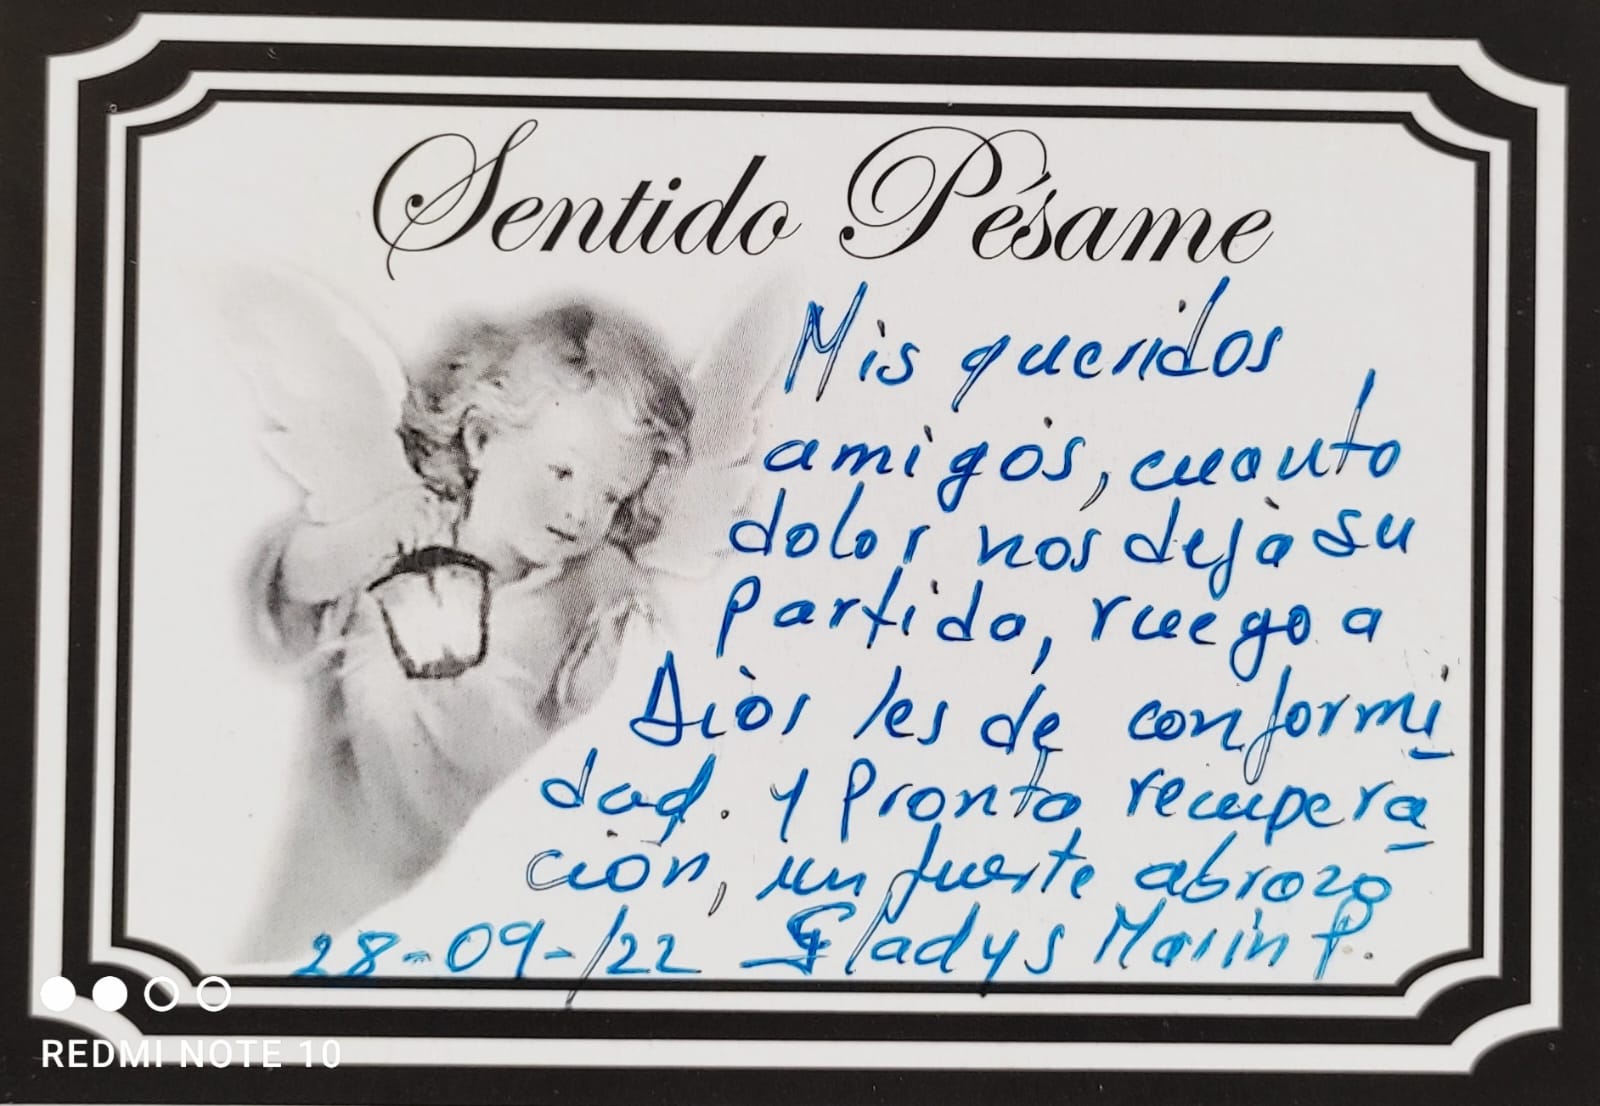 Sentido Pésame
Mis queridos
amigos, cuanto
dolor nos deja su
partida, ruego a
Dios les de conformi
dad. y pronto recupera
ción, un fuerte abrazo
28-09-/22 Gladys Marin P.
REDMI NOTE 10